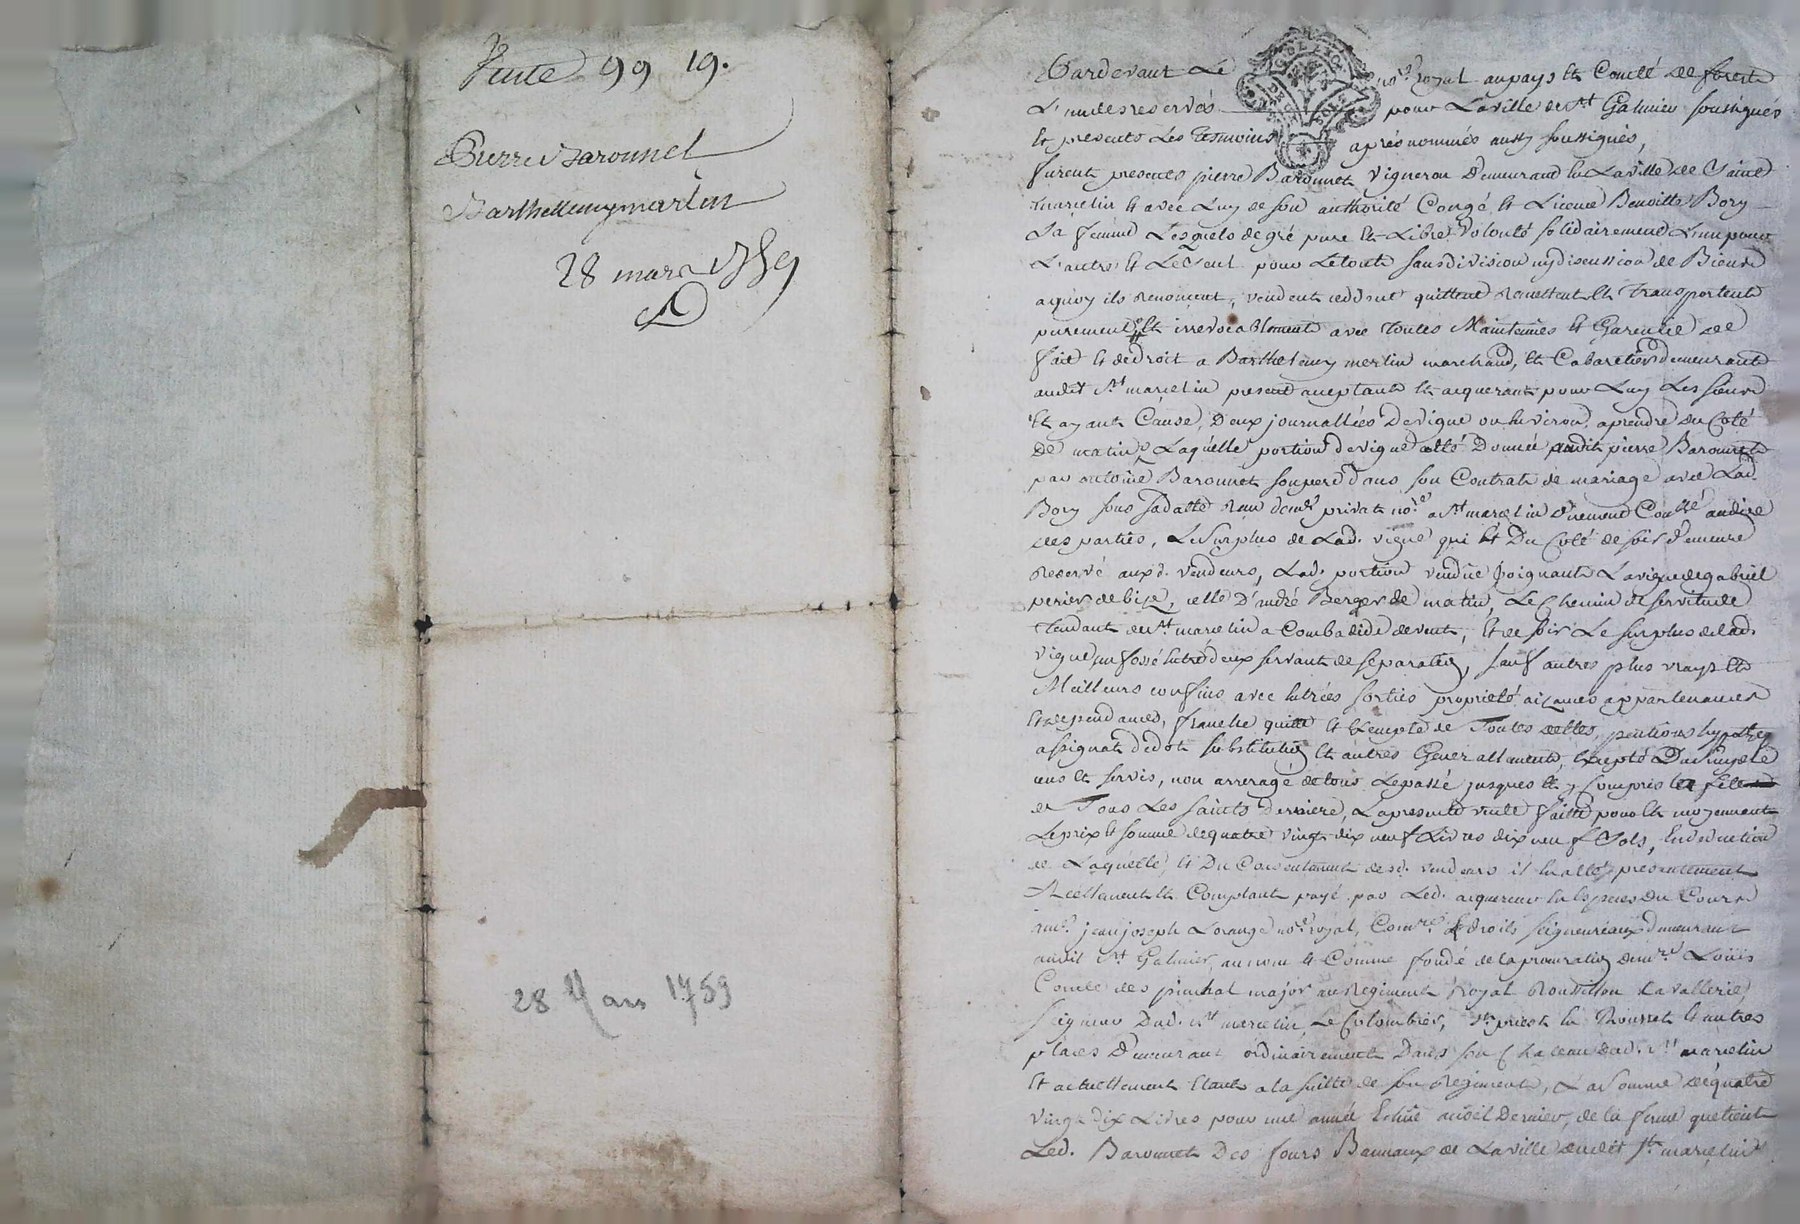 Vente 99 19.
Pierre Barounet
Barthellemy merlin
28 mars 1759
28 Mars 1759
Pardevant Le nore. royal au pays et Comté de forest
Lun des reservés pour La ville de st Galmier soussignés
Et presents Les tesmoins aprés nommés aussy soussignés,
furent presents pierre Barounet vigneron Demeurant En La ville de Saint
marcelin Et avec Luy de son authorité Congé et Licence Benoitte Bory
Sa femme Lesquels de gré pure Et Libre Volonté solidairement L'un pour
L'autre et Le Seul pour Le tout sans division ny discussion de Biens
a quoy ils renoncent, vendent ceddent quittent remettent Et transportent
purement et irrevocablement avec toutes Maintenües et Garentie de
fait et de droit a Barthelemy merlin marchand, et Cabaretier demeurant
audit st marcelin present aceptant Et aquerant pour Luy Les siens
Et ayant Cause, Deux journallées De vigne ou Environ, a prendre du Coté
de matin, Laquelle portion de vigne a Eté Donnée audit pierre Barounet
par antoine Barounet son pere Dans son Contrat de mariage avec Lad.
Bory sous sa datte Reçu de me privat nore. a st marcelin düement Conllé au dire
des parties, Le Surplus de Lad. vigne qui Est Du Coté de soir demeure
Reservé auxd. vendeurs, Lad. portion vendüe joignant La vigne de gabriel
perier de bize, celle D'andré Berger de matin, Le Chemin de servitude
tendant de st marcelin a Combadide de vent, Et de soir Le surplus de lad.
vigne un fossé Entre deux servant de separation, sauf autres plus vrays Et
Meilleurs confins avec Entrées sorties proprieté aizances appartenances
Et dependances, franche quitte Et Exempte de Toutes dettes, pentions hypoteq
assignat de dot substitution Et autres Generallement, Excepté Du simple
cens Et servis, non arreragé de tout Le passé jusques Et y Compris La fête
de Tous Les saints Derniere, La presente vente faitte pour Et moyennant
Le prix et somme de quatre vingt dix neuf Livres dix neuf Sols, En deduction
de Laquelle, et Du Consentement desd. vendeurs il En a Eté presentement
Reellement Et Comptant payé par Led. aquereur En Especes Du Cours
a me. jean joseph Lorange nore. royal, Comre. Ez droits seigneuriaux demeurant
audit st Galmier, au nom Et Comme fondé de la procuration de mre Loüis
Comte des pinchal major au Regiment Royal Roussillon Cavallerie,
seigneur Dud. st marcelin, Le Colombier, st priest la Rousset et autres
places Demeurant ordinairement Dans son Chateau dud. st marcelin
Et actuellement Etant a la suitte de son Regiment, La somme de quatre
vingt dix Livres pour une année Echüe a noël Dernier, de la ferme que tient
Led. Barounet Des fours Bannaux de La ville dudit st. marcelin